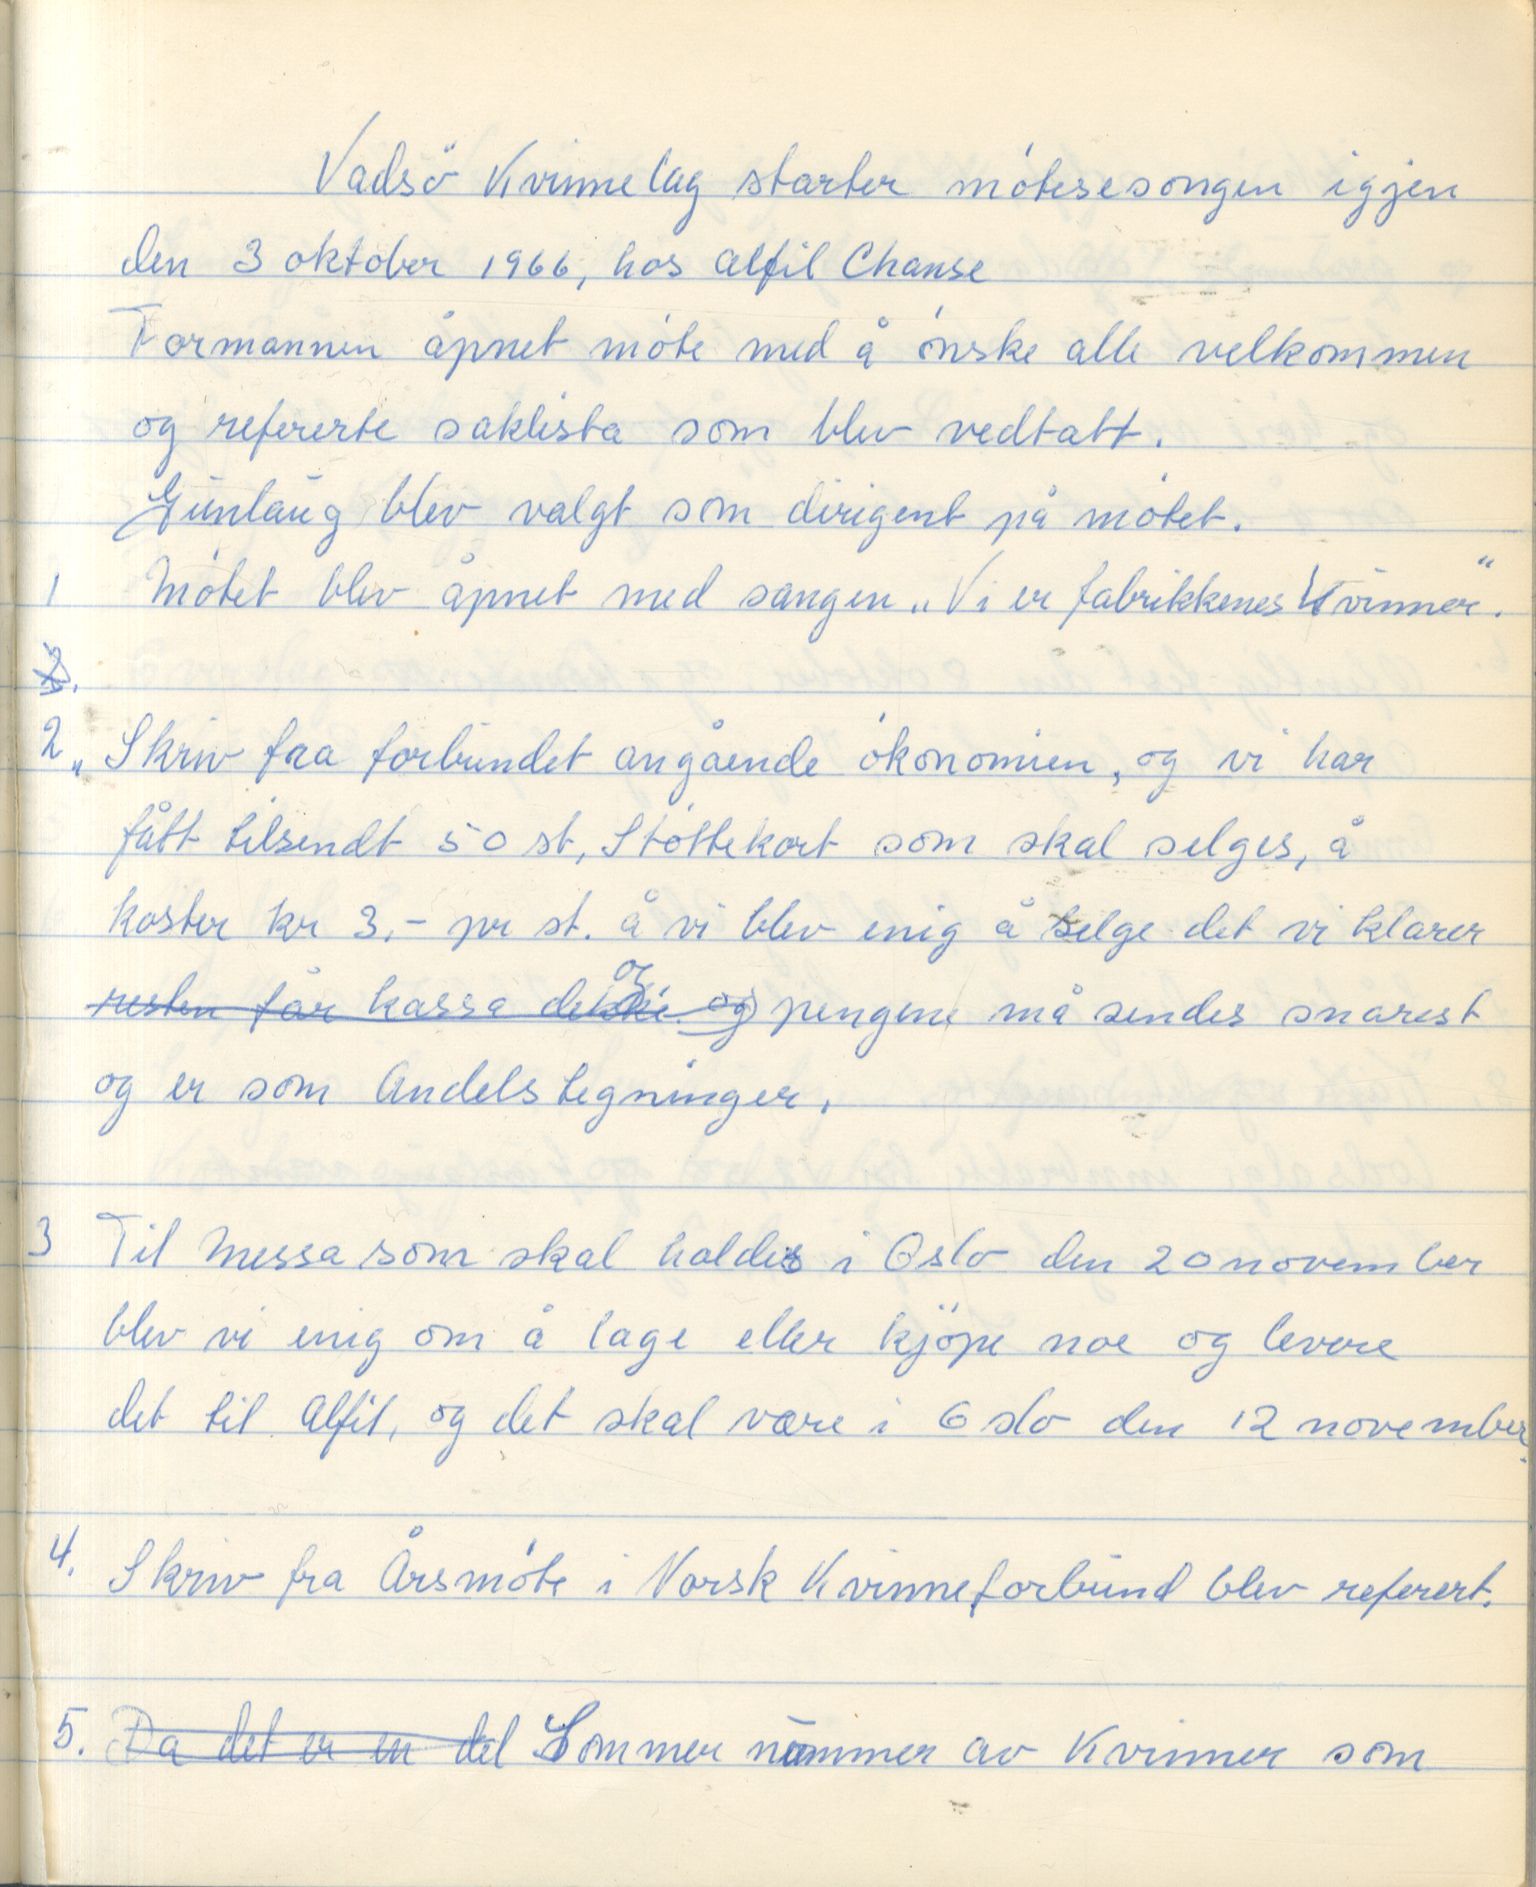 Vadsö Kvinnelag starter mötesesongen igjen
den 3 oktober 1966, hos Alfil Chanse
Formannen åpnet möte med å önske alle velkommen
og refererte saklista som blev vedtatt.
Gunlaug blev valgt som dirigent på mötet.
1 Mötet blev åpnet med sangen „Vi er fabrikkenes Kvinner“.
2„ Skriv fra forbundet angående ökonomien, og vi har
fått tilsendt 50 st, Stöttekort som skal selges, å
koster kr 3,- pr st. å vi blev enig å selge det vi klarer
og
resten får kassa dekke og pengene må sendes snarest
og er som Andelstegninger.
3 Til Messa som skal holdes i Oslo den 20 november
blev vi enig om å lage eller kjöpe noe og levere
det til Alfil, og det skal være i Oslo den 12 november.
4. Skriv fra Årsmöte i Norsk Kvinneforbund blev referert.
5. Da det er en del Sommer nummer av Kvinner som